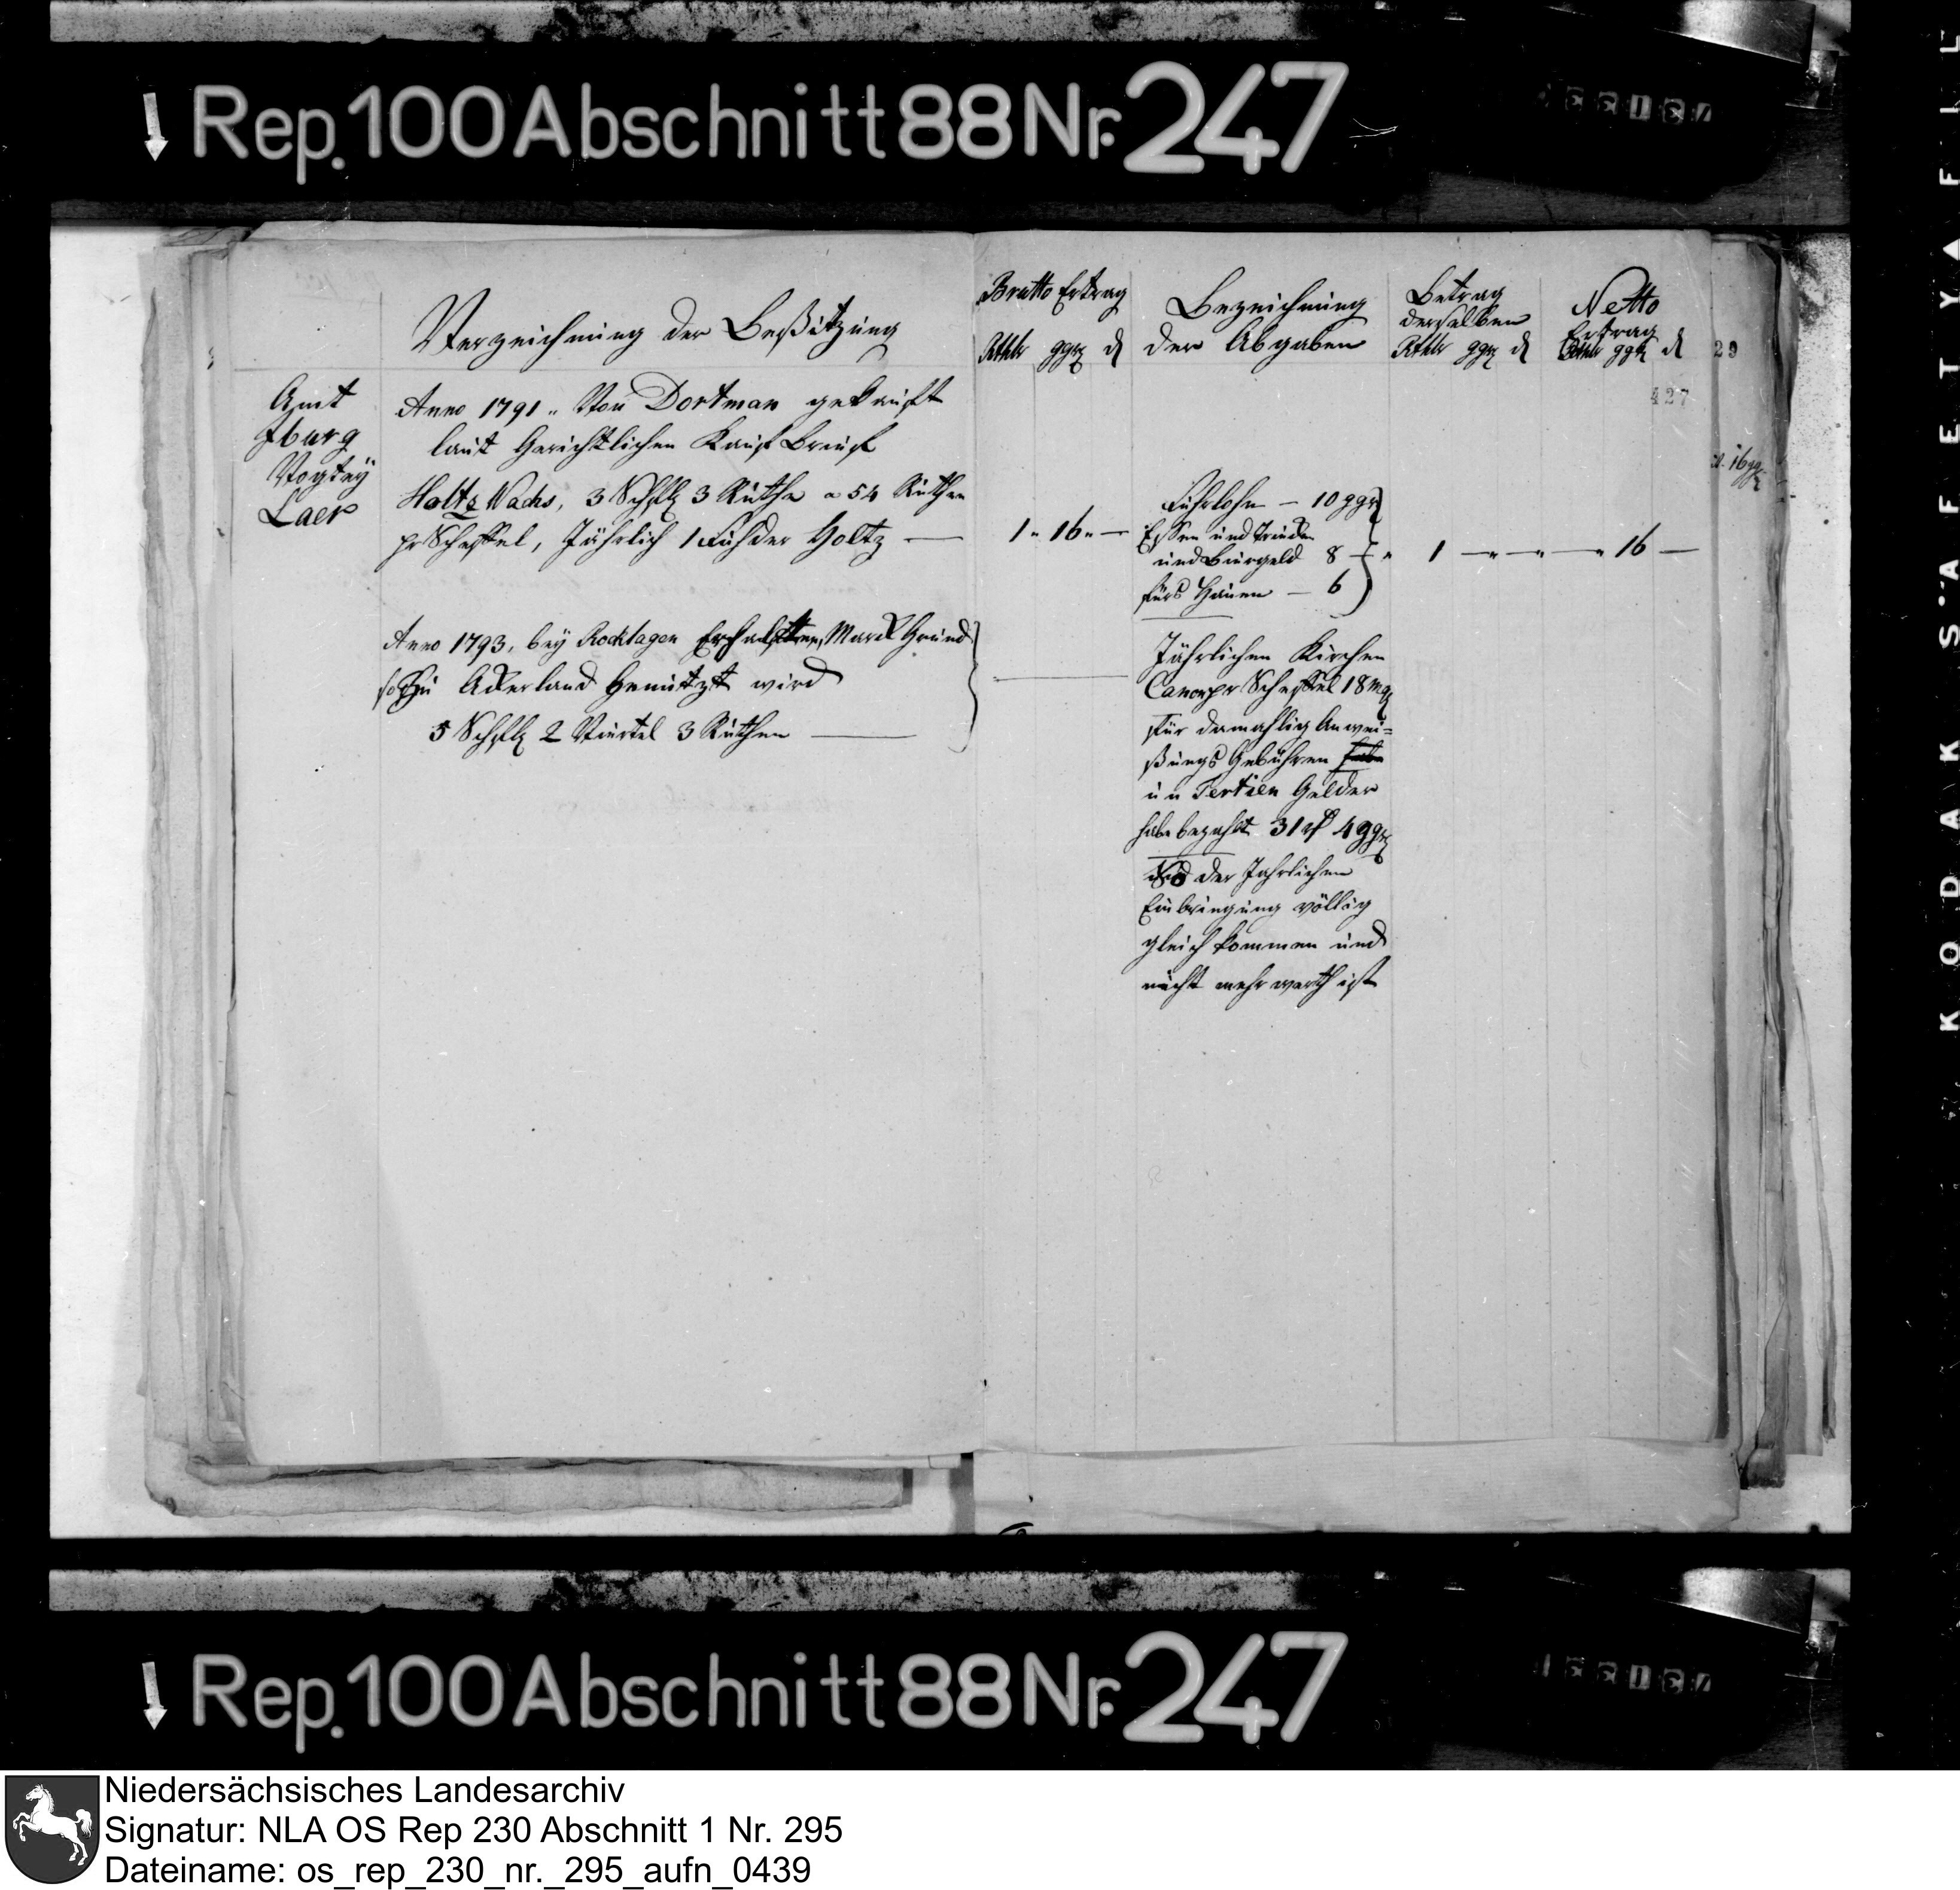 Rep. 100 Abschnitt 88 Nr. 247
Verzeichnung der Beßitzung
Brutto Ertrag
Rthlr ggr d
Bezeichnung
der Abgaben
Betrag
derselben
Rthlr ggr d
Netto
Ertrag
Rthlr ggr d
29
427
16 ggr
Amt
Iburg
Vogtey
Laer
Anno 1791 „ Von Dortman gekauft
laut Gerichtlichen Kauf Brief
Holtz Wachs, 3 Schfl 3 Ruthe a 54 Ruthen
pr Scheffel, Jährlich 1 Fuhder Holtz —
1 „ 16 „ —
Fuhrlohn — 10 ggr
Essen und Trinken
und Burgeld 8 —
fürs Hauen — 6
„ 1 — „ — „ — „ 16 —
Anno 1793, bey Rocklagen Erhaltten, Marck Grund
so zu Ackerland Genutzt wird
5 Schfl 2 Viertel 3 Ruthen —
Jährlichen Kirchen
Canon pr Scheffel 18 mg
für damahlig Anwei=
ßungs Gebühren
un Tertien Gelder
habe bezahlt 31 rt 4 ggr
der Jahrlichen
Einbringung völlig
gleich kommen und
nicht mehr werth ist
Rep. 100 Abschnitt 88 Nr. 247
KODAK SAFETY FIL
Niedersächsisches Landesarchiv
Signatur: NLA OS Rep 230 Abschnitt 1 Nr. 295
Dateiname: os_rep_230_nr._295_aufn_0439